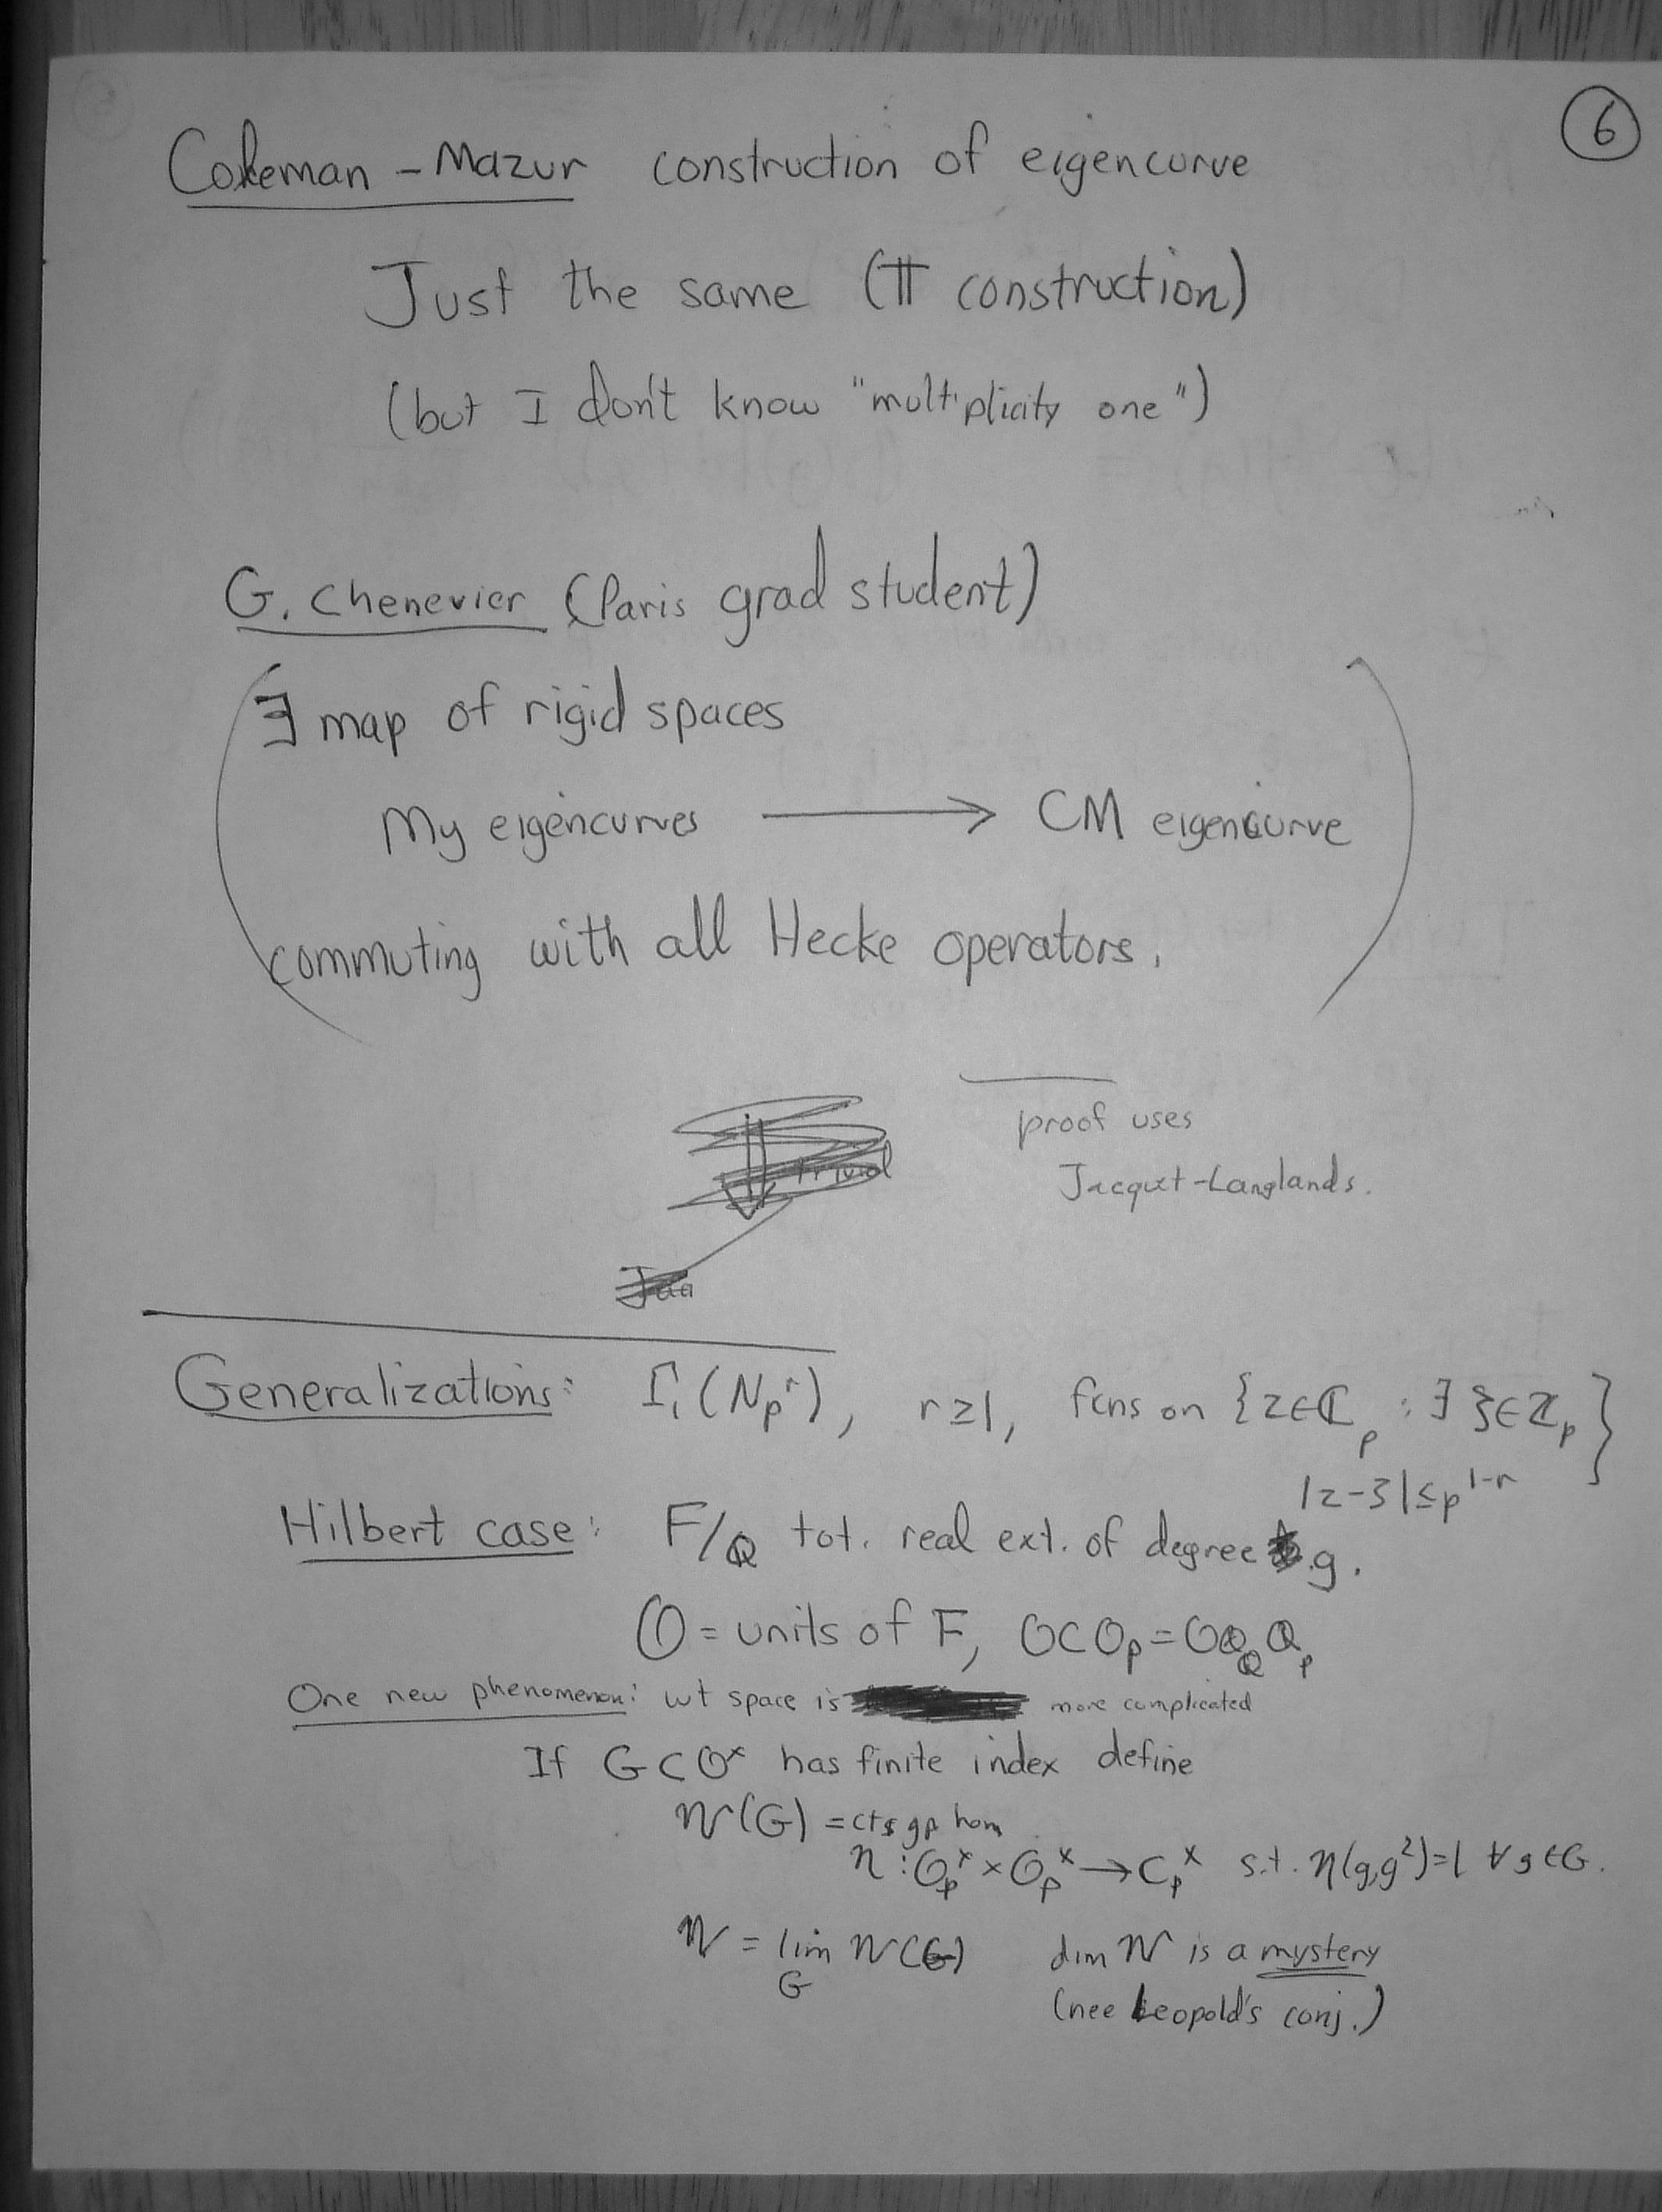 6
Coleman - Mazur construction of eigencurve
Just the same (Π construction)
(but I don't know "multiplicity one")
G. Chenevier (Paris grad student)
∃ map of rigid spaces
My eigencurves ⟶ CM eigencurve
commuting with all Hecke operators.
proof uses
Jacquet-Langlands.
trivial
Jaa
Generalizations: Γ₁(Npʳ), r≥1, fcns on {z∈ℂ_p : ∃ ξ∈ℤ_p}
|z-ξ|≤p^{1-r}
Hilbert case: F/ℚ tot. real ext. of degree g.
O = units of F, O⊂O_p=O⊗_ℚ ℚ_p
One new phenomenon: wt space is more complicated
If G⊂O^× has finite index define
W(G) = cts gp hom
η : O_p^× × O_p^× → C_p^× s.t. η(g,g²)=1 ∀ g∈G.
W = lim W(G) dim W is a mystery
G
(nee Leopold's conj.)